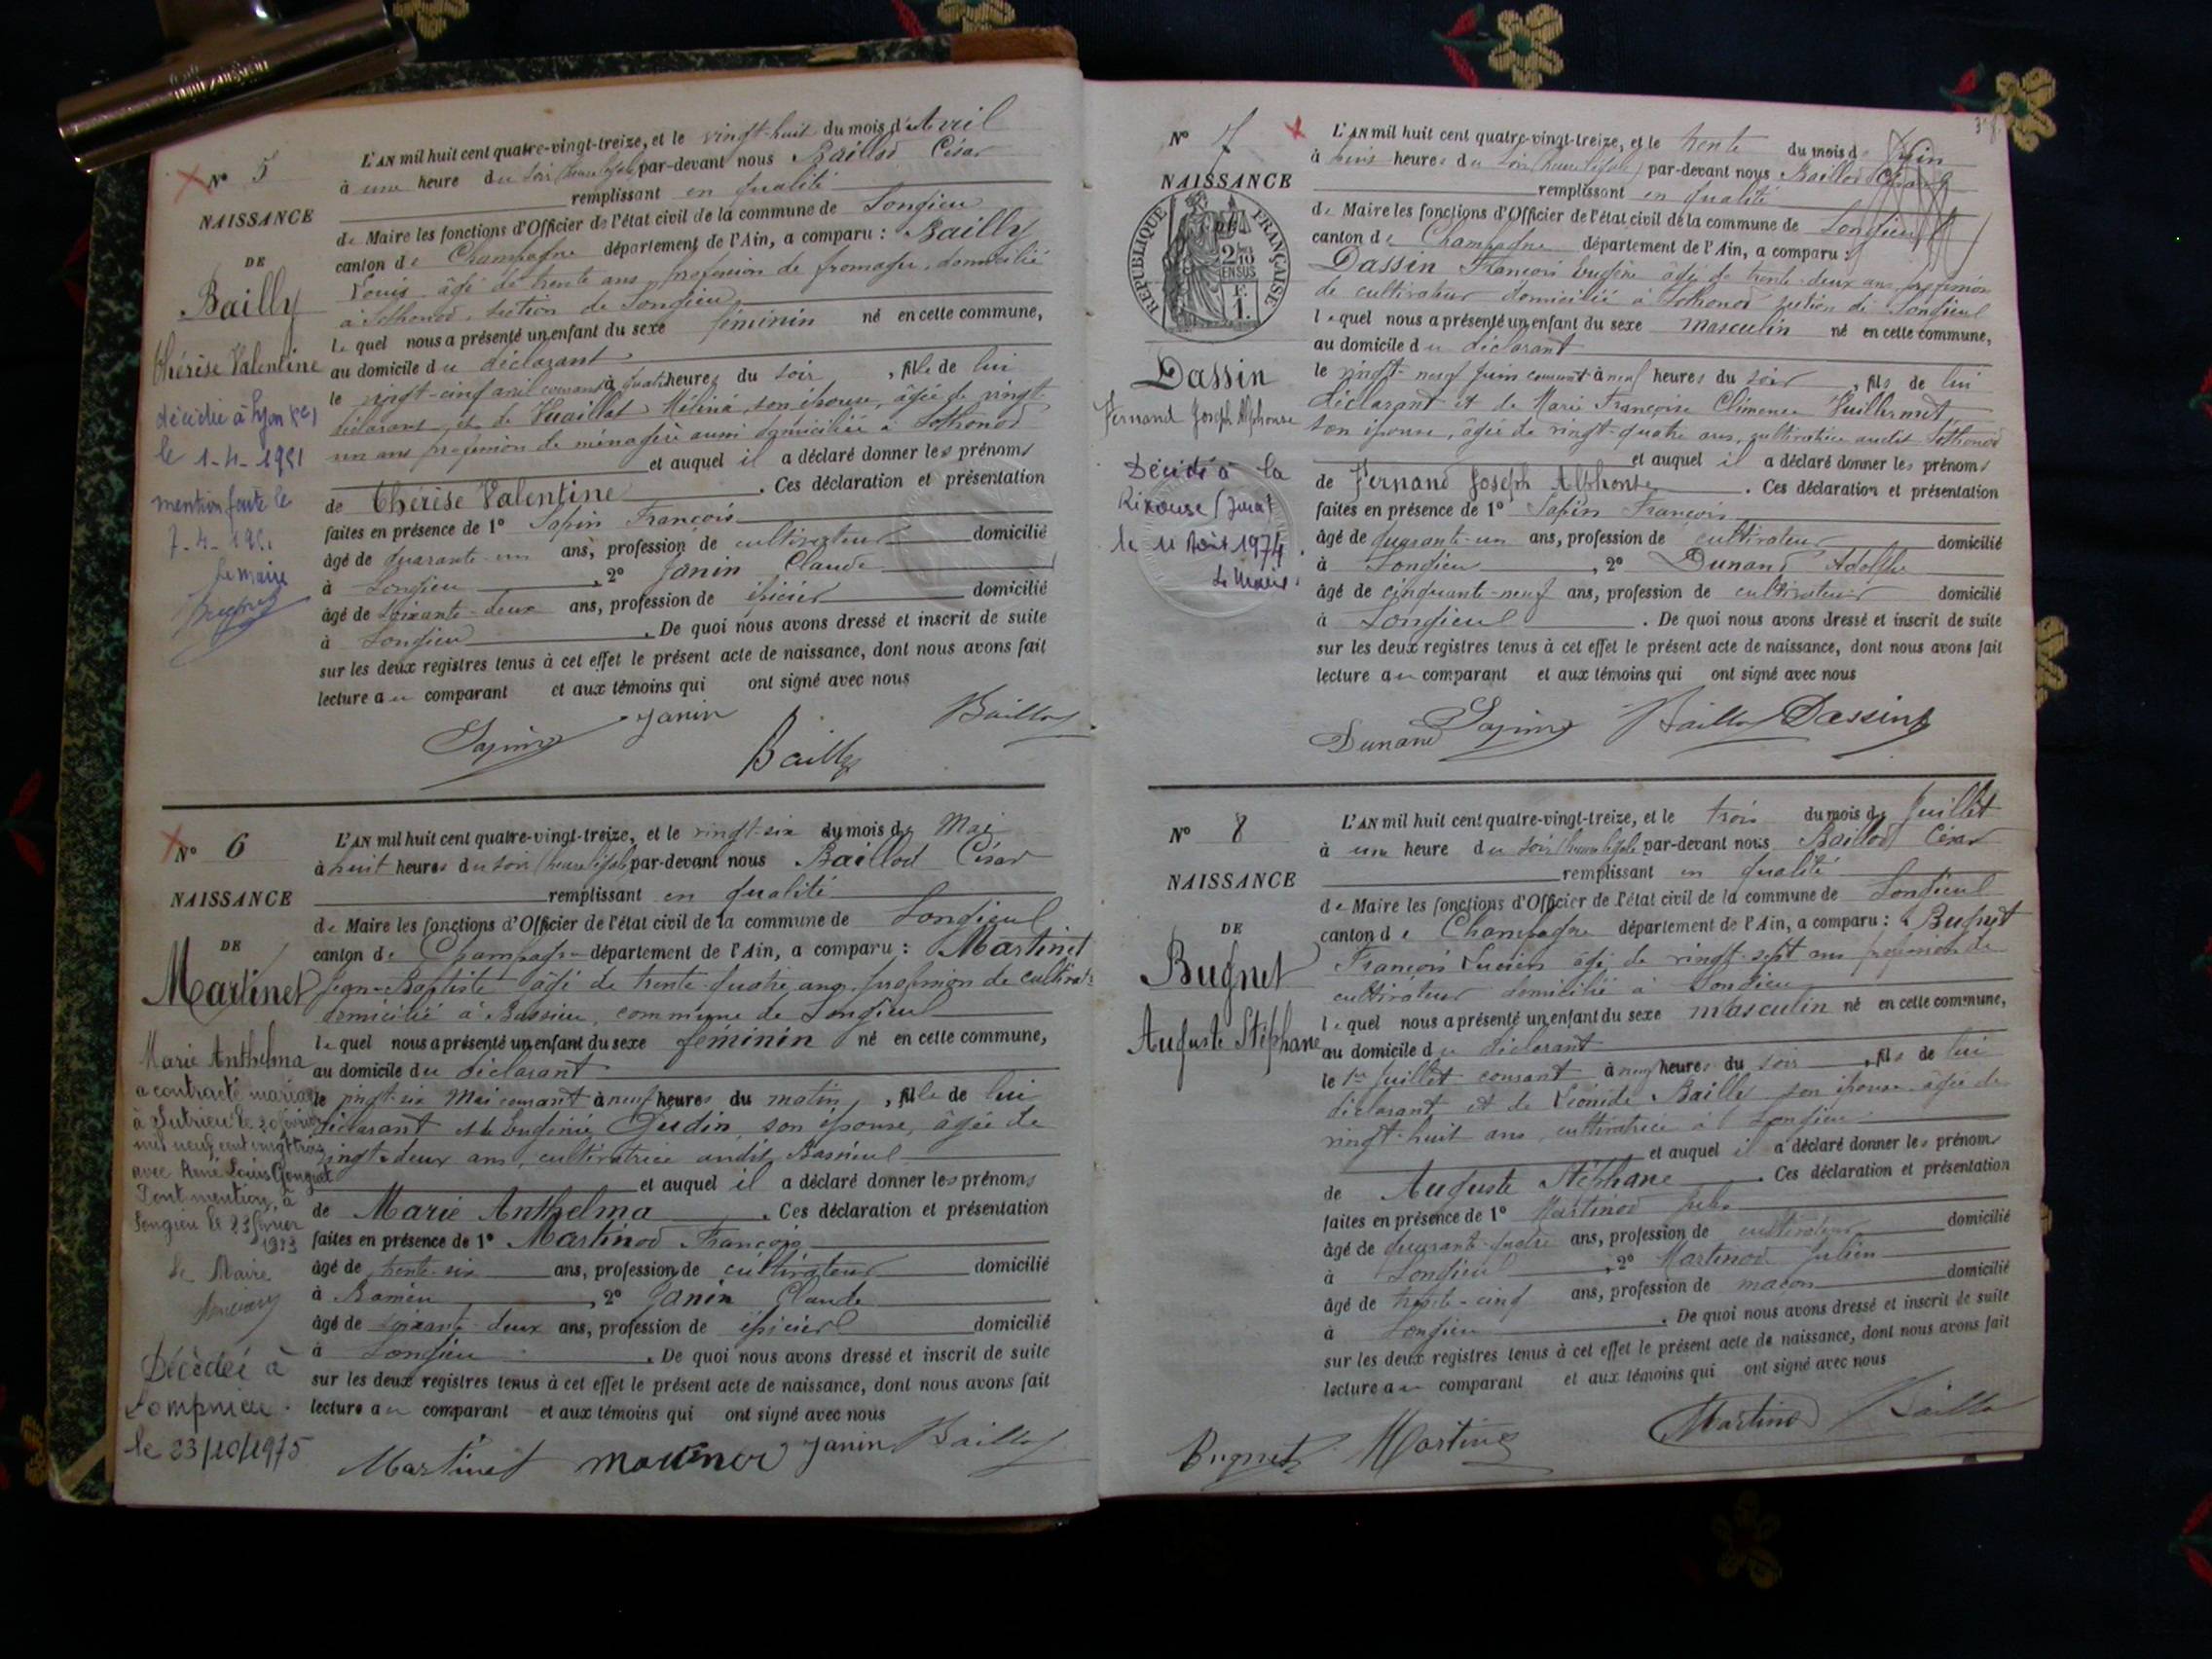 N° 5
NAISSANCE
DE
Bailly
Thérèse Valentine
décédée à Lyon
le 1-4-1981
mention faite le
7-4-1981
le maire
L'AN mil huit cent quatre-vingt-treize, et le vingt-huit du mois d'Avril
à une heure du soir (heure légale) par-devant nous Baillod César
remplissant en qualité
de Maire les fonctions d'Officier de l'état civil de la commune de Songieu
canton de Champagne département de l'Ain, a comparu : Bailly
Louis âgé de trente ans profession de fromager, domicilié
à Sothonod, section de Songieu
lequel nous a présenté un enfant du sexe féminin né en cette commune,
au domicile du déclarant
le vingt-cinq avril courant à quatre heures du soir, fille de lui
déclarant et de Vuaillat Mélina, son épouse, âgée de vingt
un ans profession de ménagère aussi domiciliée à Sothonod
et auquel il a déclaré donner les prénoms
de Thérèse Valentine. Ces déclaration et présentation
faites en présence de 1° Sapin François
âgé de quarante-un ans, profession de cultivateur domicilié
à Songieu, 2° Janin Claude
âgé de soixante-deux ans, profession de épicier domicilié
à Songieu. De quoi nous avons dressé et inscrit de suite
sur les deux registres tenus à cet effet le présent acte de naissance, dont nous avons fait
lecture au comparant et aux témoins qui ont signé avec nous
Sapin Janin Bailly Baillod
N° 6
NAISSANCE
DE
Martinet
Marie Anthelma
a contracté mariage
à Sutrieu le 20 février
mil neuf cent vingt trois
avec René Louis Gonguet
Dont mention, à
Songieu le 23 février
1923
Le Maire
Décédée à
Lompnieu
le 23/10/1975
L'AN mil huit cent quatre-vingt-treize, et le vingt-six du mois de Mai
à huit heures du soir (heure légale) par-devant nous Baillod César
remplissant en qualité
de Maire les fonctions d'Officier de l'état civil de la commune de Songieu
canton de Champagne département de l'Ain, a comparu : Martinet
Jean-Baptiste âgé de trente-quatre ans, profession de cultivat
domicilié à Bassieu, commune de Songieu
lequel nous a présenté un enfant du sexe féminin né en cette commune,
au domicile du déclarant
le vingt-six Mai courant à neuf heures du matin, fille de lui
déclarant et de Eugénie Gudin, son épouse, âgée de
vingt-deux ans, cultivatrice audit Bassieu
et auquel il a déclaré donner les prénoms
de Marie Anthelma. Ces déclaration et présentation
faites en présence de 1° Martinod François
âgé de trente-six ans, profession de cultivateur domicilié
à Bassieu, 2° Janin Claude
âgé de soixante-deux ans, profession de épicier domicilié
à Songieu. De quoi nous avons dressé et inscrit de suite
sur les deux registres tenus à cet effet le présent acte de naissance, dont nous avons fait
lecture au comparant et aux témoins qui ont signé avec nous
Martinet Janin Baillod
N° 7
NAISSANCE
REPUBLIQUE FRANÇAISE
2/10 EN SUS
F. 1.
Dassin
Fernand Joseph Alphonse
Décédé à La
Rixouse (Jura)
le 11 Août 1974.
Le Maire.
L'AN mil huit cent quatre-vingt-treize, et le trente du mois de Juin
à heures du soir (heure légale) par-devant nous Baillod César
remplissant en qualité
de Maire les fonctions d'Officier de l'état civil de la commune de Songieu
canton de Champagne département de l'Ain, a comparu :
Dassin François Eugène âgé de trente-deux ans, profession
de cultivateur domicilié à Sothonod section de Songieu
lequel nous a présenté un enfant du sexe masculin né en cette commune,
au domicile du déclarant
le vingt-neuf Juin courant à neuf heures du soir, fils de lui
déclarant et de Marie Françoise Clémence Vuillermet,
son épouse, âgée de vingt-quatre ans, cultivatrice audit Sothonod
et auquel il a déclaré donner les prénoms
de Fernand Joseph Alphonse. Ces déclaration et présentation
faites en présence de 1° Sapin François
âgé de quarante-un ans, profession de cultivateur domicilié
à Songieu, 2° Dunand Adolphe
âgé de cinquante-neuf ans, profession de cultivateur domicilié
à Songieu. De quoi nous avons dressé et inscrit de suite
sur les deux registres tenus à cet effet le présent acte de naissance, dont nous avons fait
lecture au comparant et aux témoins qui ont signé avec nous
Dunand Sapin Baillod Dassin
N° 8
NAISSANCE
DE
Bugnet
Auguste Stéphane
L'AN mil huit cent quatre-vingt-treize, et le trois du mois de Juillet
à une heure du soir (heure légale) par-devant nous Baillod César
remplissant en qualité
de Maire les fonctions d'Officier de l'état civil de la commune de Songieu
canton de Champagne département de l'Ain, a comparu : Bugnet
François Lucien âgé de vingt-sept ans profession de
cultivateur domicilié à Songieu
lequel nous a présenté un enfant du sexe masculin né en cette commune,
au domicile du déclarant
le 1er Juillet courant à neuf heures du soir, fils de lui
déclarant et de Léonide Bailly son épouse âgée de
vingt-huit ans, cultivatrice à Songieu
et auquel il a déclaré donner les prénoms
de Auguste Stéphane. Ces déclaration et présentation
faites en présence de 1° Martinod
âgé de quarante-quatre ans, profession de cultivateur domicilié
à Songieu, 2° Martinod Julien
âgé de trente-cinq ans, profession de maçon domicilié
à Songieu. De quoi nous avons dressé et inscrit de suite
sur les deux registres tenus à cet effet le présent acte de naissance, dont nous avons fait
lecture au comparant et aux témoins qui ont signé avec nous
Bugnet Martinod Martinod Baillod